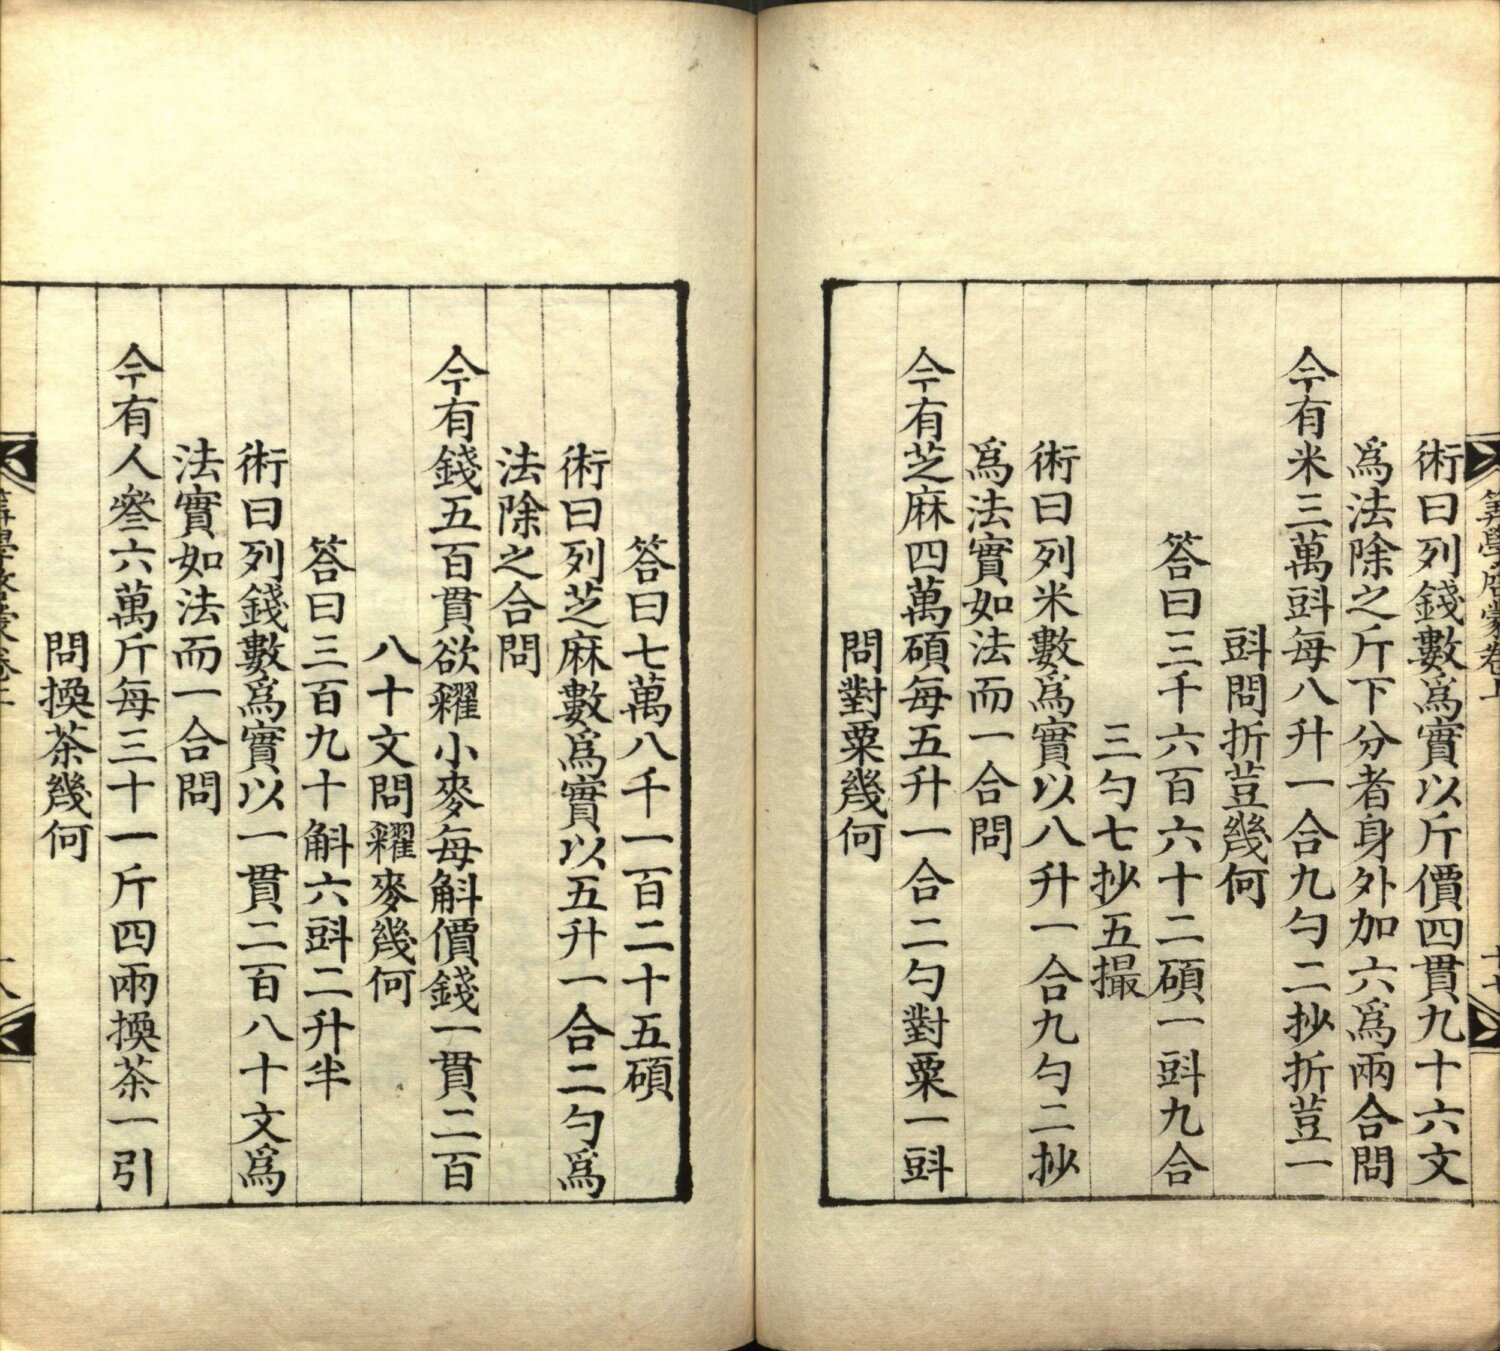 算學啓蒙卷上
十七
術曰列錢數爲實以斤價四貫九十六文
爲法除之斤下分者身外加六爲兩合問
今有米三萬㪷每八升一合九勺二抄折荳一
㪷問折荳幾何
答曰三千六百六十二碩一㪷九合
三勺七抄五撮
術曰列米數爲實以八升一合九勺二抄
爲法實如法而一合問
今有芝麻四萬碩每五升一合二勺對粟一㪷
問對粟幾何
答曰七萬八千一百二十五碩
術曰列芝麻數爲實以五升一合二勺爲
法除之合問
今有錢五百貫欲糴小麥每斛價錢一貫二百
八十文問糴麥幾何
答曰三百九十斛六㪷二升半
術曰列錢數爲實以一貫二百八十文爲
法實如法而一合問
今有人參六萬斤每三十一斤四兩換茶一引
問換茶幾何